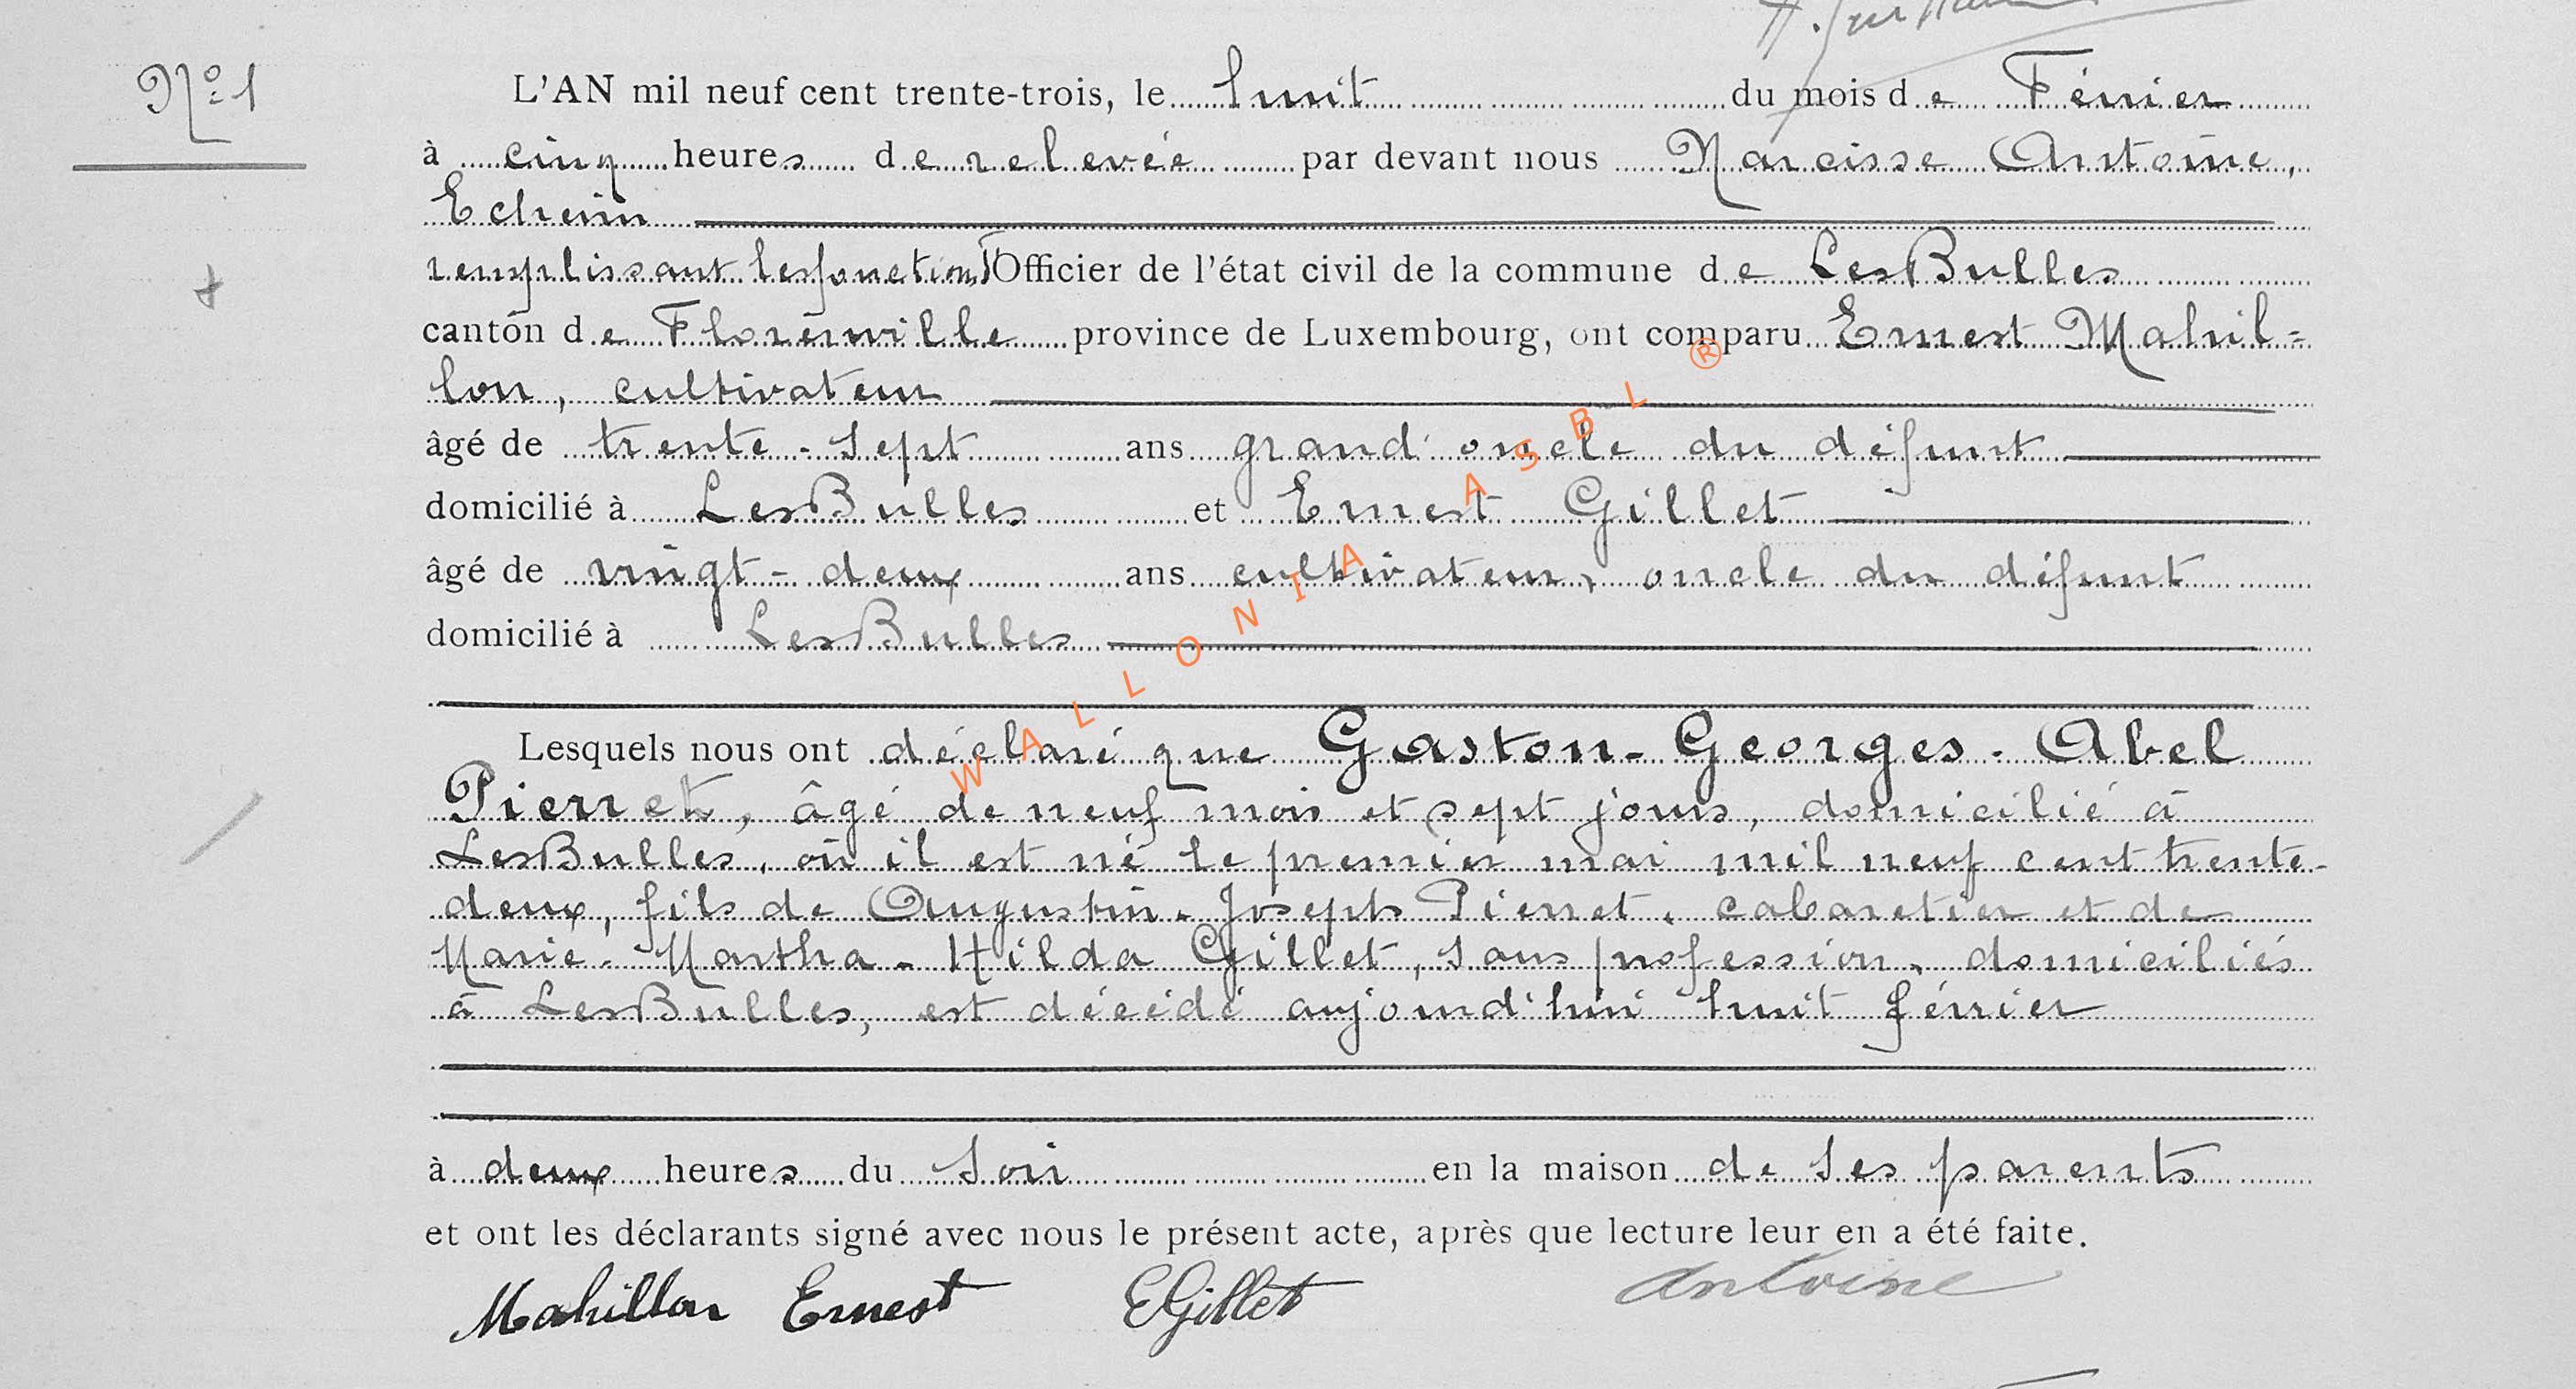 N° 1
L'AN mil neuf cent trente-trois, le huit du mois de Février
à cinq heures de relevée par devant nous Narcisse Antoine,
Echevin
remplissant les fonctions d'Officier de l'état civil de la commune de LesBulles
canton de Florenville province de Luxembourg, ont comparu Ernest Mahil=
lon, cultivateur
âgé de trente-sept ans grand'oncle du défunt
domicilié à LesBulles et Ernest Gillet
âgé de vingt-deux ans cultivateur, oncle du défunt
domicilié à LesBulles
Lesquels nous ont déclaré que Gaston-Georges-Abel
Pierret, âgé de neuf mois et sept jours, domicilié à
LesBulles, où il est né le premier mai mil neuf cent trente-
deux, fils de Augustin-Joseph Pierret, cabaretier et de
Marie-Martha-Hilda Gillet, sans profession, domiciliés
à LesBulles, est décédé aujourd'hui huit février
à deux heures du soir en la maison de ses parents
et ont les déclarants signé avec nous le présent acte, après que lecture leur en a été faite.
Mahillon Ernest EGillet Antoine
WALLONIA ASBL ®